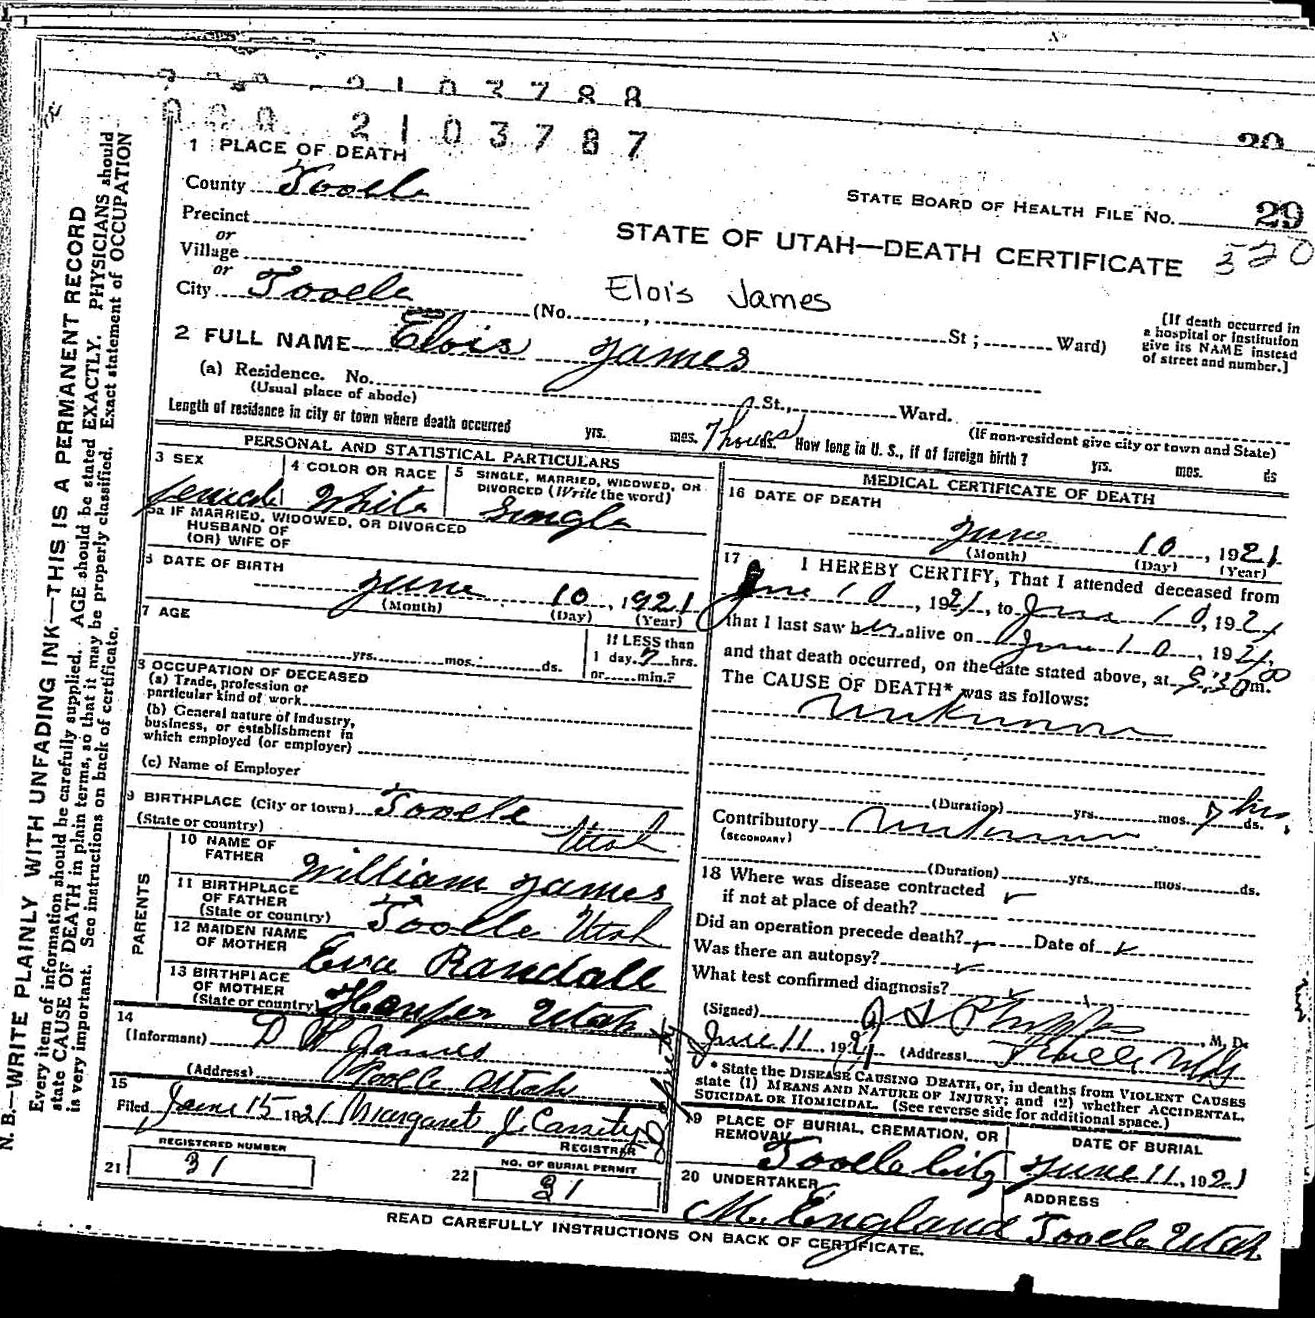 2103788
000 2103787
29
1 PLACE OF DEATH
County Tooele
STATE BOARD OF HEALTH FILE No. 29
Precinct
or
STATE OF UTAH—DEATH CERTIFICATE 520
Village
or
City Tooele
Elois James
(No. , St; Ward)
[If death occurred in
a hospital or institution
give its NAME instead
of street and number.]
2 FULL NAME Elois James
(a) Residence. No. St., Ward.
(Usual place of abode)
(If non-resident give city or town and State)
Length of residence in city or town where death occurred yrs. mos. 7 hours ds. How long in U. S., if of foreign birth? yrs. mos. ds
PERSONAL AND STATISTICAL PARTICULARS
3 SEX
female
4 COLOR OR RACE
White
5 SINGLE, MARRIED, WIDOWED, OR
DIVORCED (Write the word)
Single
5a IF MARRIED, WIDOWED, OR DIVORCED
HUSBAND OF
(OR) WIFE OF
6 DATE OF BIRTH
June 10, 1921
(Month) (Day) (Year)
7 AGE
yrs. mos. ds.
If LESS than
1 day, 7 hrs.
or min.?
8 OCCUPATION OF DECEASED
(a) Trade, profession or
particular kind of work
(b) General nature of Industry,
business, or establishment in
which employed (or employer)
(c) Name of Employer
9 BIRTHPLACE (City or town) Tooele
(State or country) Utah
PARENTS
10 NAME OF
FATHER William James
11 BIRTHPLACE
OF FATHER
(State or country) Tooele Utah
12 MAIDEN NAME
OF MOTHER Eva Randall
13 BIRTHPLACE
OF MOTHER
(State or country) Harper Utah
14
(Informant) D W James
(Address) Tooele Utah
15
Filed June 15 1921 Margaret J. Carrity
REGISTRAR
Deputy
REGISTERED NUMBER
21 31
NO. OF BURIAL PERMIT
22 31
MEDICAL CERTIFICATE OF DEATH
16 DATE OF DEATH
June 10, 1921
(Month) (Day) (Year)
17 I HEREBY CERTIFY, That I attended deceased from
June 10, 1921, to June 10, 1921
that I last saw her alive on June 10, 1921,
and that death occurred, on the date stated above, at m.
The CAUSE OF DEATH* was as follows:
unknown
(Duration) yrs. mos. 7 hrs. ds.
Contributory unknown
(SECONDARY)
(Duration) yrs. mos. ds.
18 Where was disease contracted
if not at place of death?
Did an operation precede death? Date of
Was there an autopsy?
What test confirmed diagnosis?
(Signed) Phipps M. D.
June 11, 1921 (Address) Tooele Utah
* State the DISEASE CAUSING DEATH, or, in deaths from VIOLENT CAUSES
state (1) MEANS AND NATURE OF INJURY; and (2) whether ACCIDENTAL,
SUICIDAL OR HOMICIDAL. (See reverse side for additional space.)
19 PLACE OF BURIAL, CREMATION, OR
REMOVAL
Tooele City
DATE OF BURIAL
June 11, 1921
20 UNDERTAKER
M. England
ADDRESS
Tooele Utah
READ CAREFULLY INSTRUCTIONS ON BACK OF CERTIFICATE.
N. B.—WRITE PLAINLY WITH UNFADING INK—THIS IS A PERMANENT RECORD
Every item of information should be carefully supplied. AGE should be stated EXACTLY. PHYSICIANS should
state CAUSE OF DEATH in plain terms, so that it may be properly classified. Exact statement of OCCUPATION
is very important. See instructions on back of certificate.